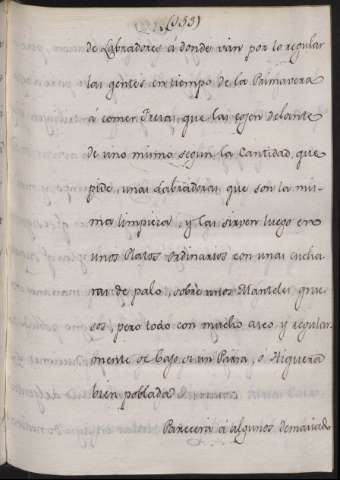 (133)
de Labradores á donde van por lo regular
las gentes en tiempo de la Primavera
á comer Fresa, que las cojen delante
de uno mismo segun la Cantidad, que
pide, unas Labradoras, que son la mis-
ma limpieza, y las sirven luego en
unos Platos ordinarios con unas cucha-
ras de palo, sobre unos Manteles grue-
sos, pero todo con mucho aseo, y regular-
mente se bajo de un Parra, o Higuera
bien poblada.
Parecerá á algunos demasiado